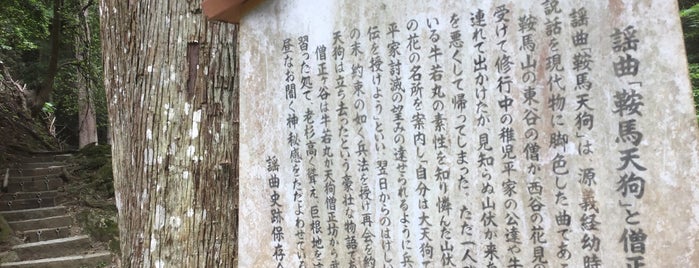 謡曲「鞍馬天狗」と僧正
謡曲「鞍馬天狗」は、源義経幼時
説話を現代物に脚色した曲であ
鞍馬山の東谷の僧が西谷の花見
受けて修行中の稚児平家の公達や牛
連れて出かけたが、見知らぬ山伏が来
を悪くして帰ってしまった。ただ一人
いる牛若丸の素性を知り憐んだ山伏
の花の名所を案内し、自分は大天狗で
平家討滅の望みの達せられるように兵
伝を授けよう」といい、翌日からのはげしい
の末、約束の如く兵法を授け再会を約
天狗は立ち去ったという豪壮な物語であ
僧正ヶ谷は牛若丸が天狗僧正坊から武
習った処で、老杉高く聳え、巨根地を這
昼なお聞く神秘感をただよわせている
謡曲史跡保存会